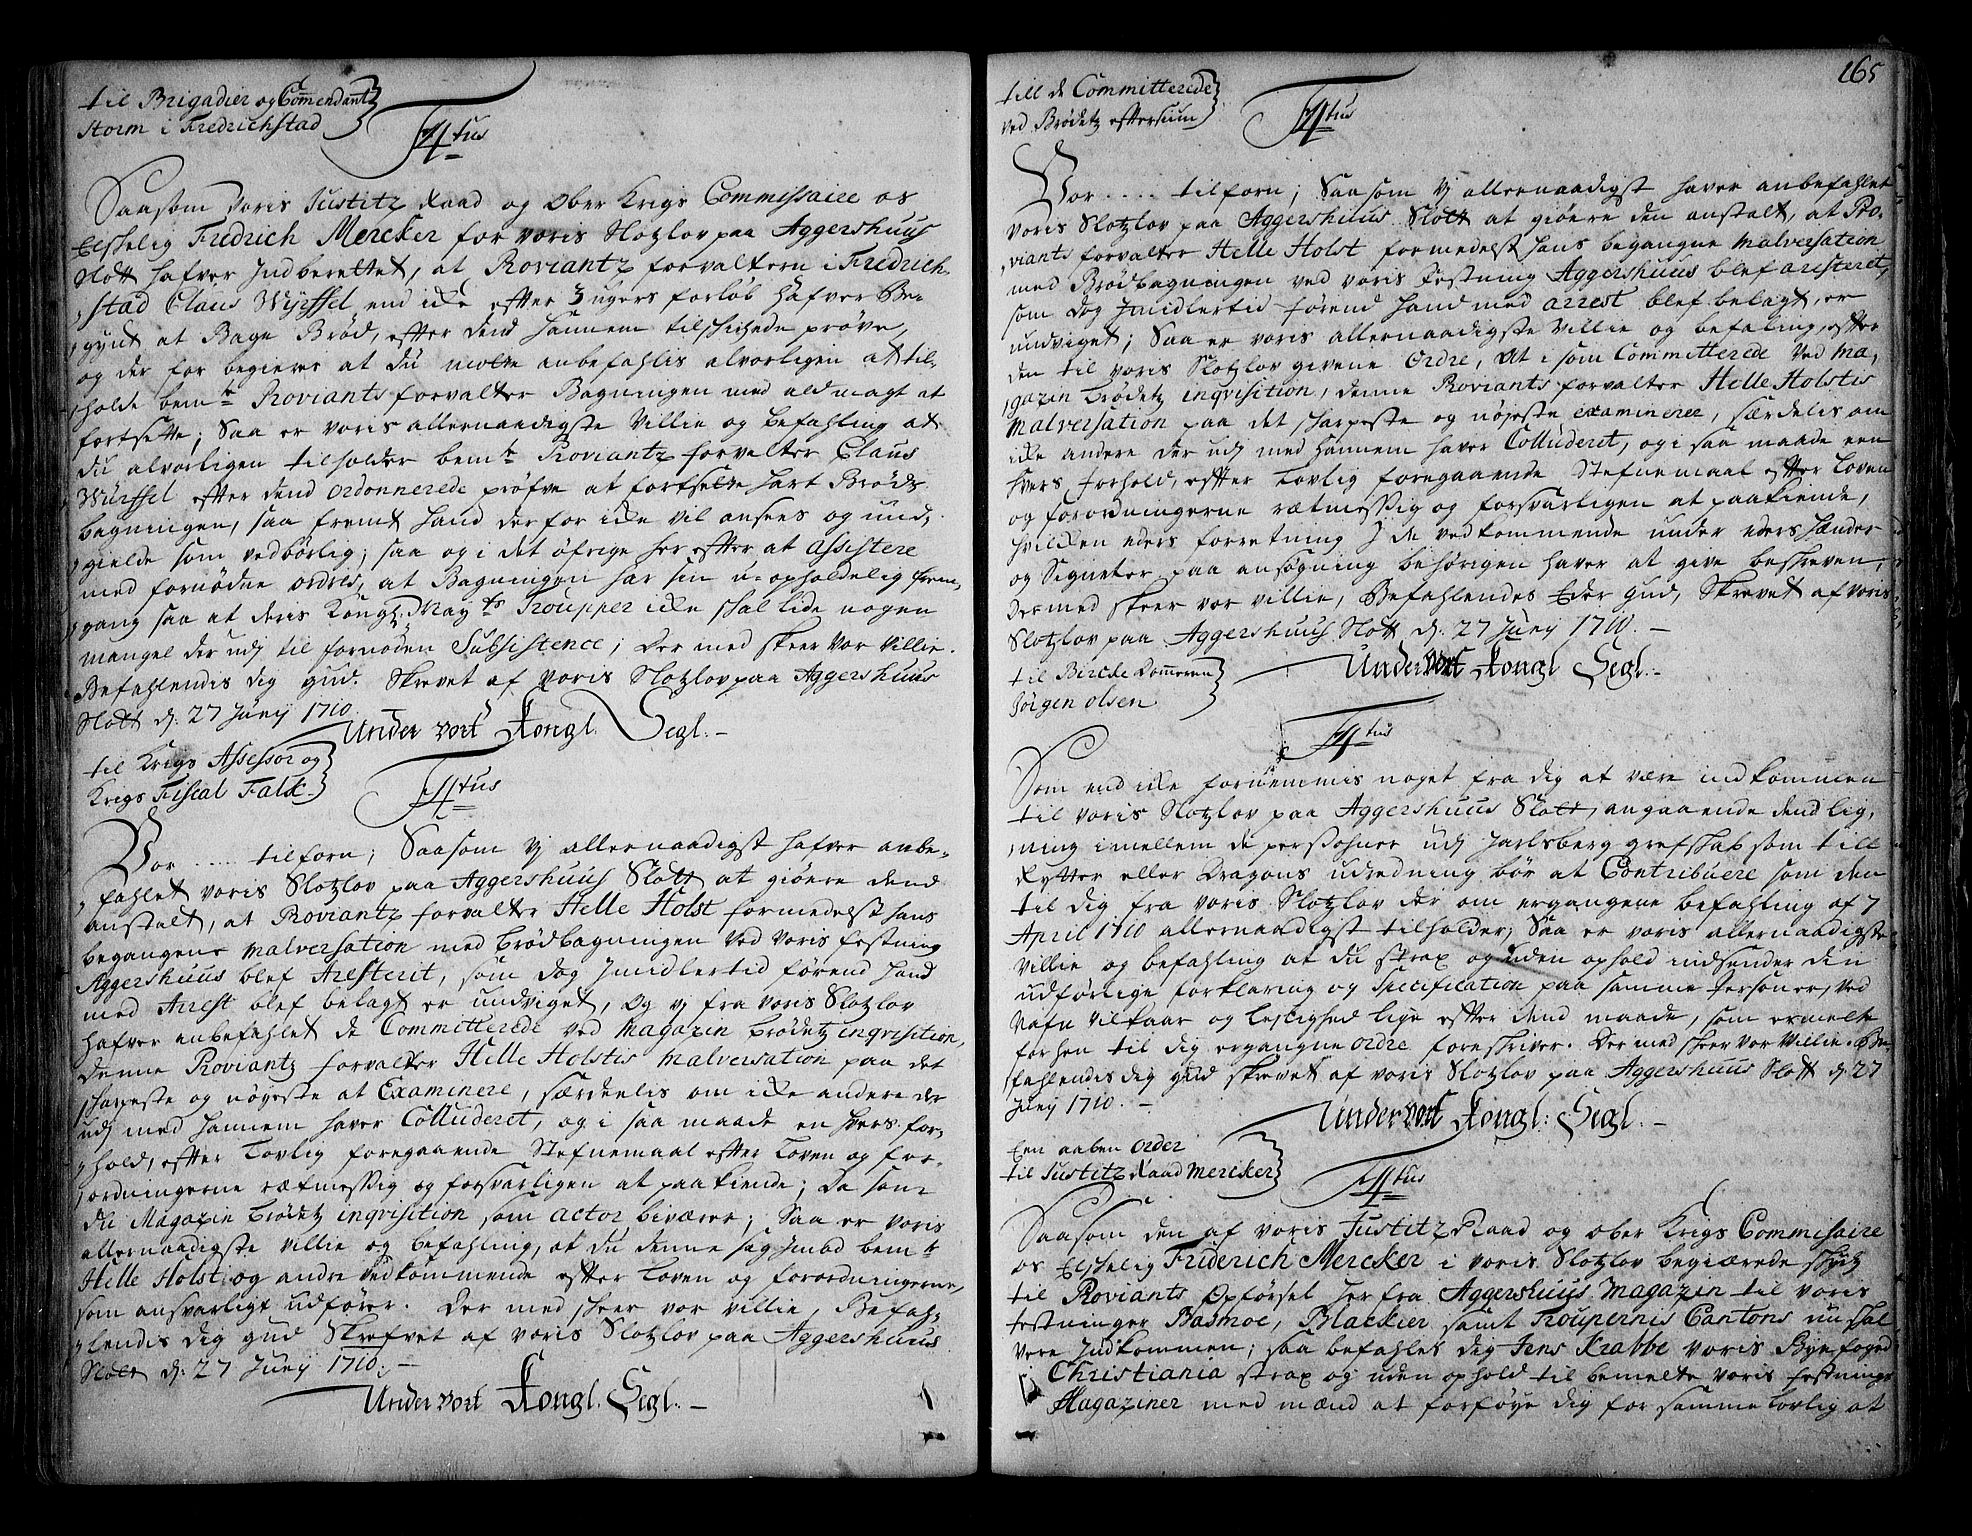 til Brigadier og Commendant
Storm i Fredrichstad
F4 tus
Saasom Voris Justitz Raad og Ober Krigs Commissaire os
Elskelig Fredrich Mercker for voris Slotzlov paa Aggershuus
Slott hafver Indberettet, at Proviantz forvaltern i Fredrich-
stad Claus Würffel end icke efter 3 ugers forløb hafver Be-
gynt at Bage Brød, efter dend hannem tilschichede prøve,
og der for begierer at du motte anbefahlis alvorligen at til-
holde bemte Proviants forvalter Bagningen med ald magt at
fortsette; Saa er voris allernaadigste Villie og befahling at
du alvorligen tilholder bemte Proviantz forvalter Claus
Würffel efter dend ordonnerede prøfve at fortsette hart Brødz
bagningen, saa fremt hand derfor icke vil ansees og und-
gielde som vedbørlig; saa og i det øfrige her efter at assistere
med fornødne ordres, at Bagningen har sin u-opholdelig frem-
gang saa at deris Kongl. May ts Troupper icke schal lide nogen
mangel der udj til fornøden Subsistence; Der med skeer Vor Villie.
Befahlendis dig gud. Skrevet af voris Slotzlov paa Aggershuus
Slott d: 27 Junij 1710.
Under vort Kongl. Segl.-
til Krigs Assessor og
Krigs Fiscal Falck
F4 tus
Vor .... tilforn; Saasom Vj allernaadigst hafver anbe-
fahlet voris Slotzlov paa Aggershuus Slott at giøere dend
anstalt, at Proviantz forvalter Helle Holst formedelst hans
begangne malversation med brødbagningen ved voris festning
Aggershuus blef Aresterit, som dog Imidlertid førend hand
med Arrest blef belagt er undviget, Og vj fra voris Slotzlov
hafver anbefahlet de Committerede ved magazin brødetz inqvisition,
denne Proviantz forvalter Helle Holstis malversation paa det
scharpeste og nøyeste at Examinere, særdelis om icke andere der
udj med hannem haver Colluderet, og i saa maade en hvers for-
hold, efter Lovlig foregaaende Stefnemaal efter Loven og for-
ordningerne retmessig og forsvarligen at paakiende; Da som
du Magazin brødetz inqvisition som actor biværer; Saa er voris
allernaadigste Villie og befahling, at du denne sag Imod bem te
Helle Holst og andre vedkommende efter Loven og forordningerne,
som ansvarligt udfører. Der med skeer vor villie, Befah-
lendis dig gud Skrefvet af voris Slotzlov paa Aggershuus
Slott d: 27 Junij 1710.-
Under vort Kongl. Segl.-
165
till de Committerede
ved Brødetz eftersiun
F4 tus
Vor .... tilforn; Saasom Vj allernaadigst haver anbefahlet
voris Slotzlov paa Aggershuus Slott at giøere den anstalt, at Pro-
viants forvalter Helle Holst formedelst hans begangne malversation
med Brødbagningen ved voris Festning Aggershuus blef aresteret,
som dog Imidlertid førend hand med arrest blef belagt, er
undviget; Saa er voris allernaadigste Villie og befaling, efter
den til voris Slotzlov givene Ordre, At i som Committerede Ved Ma-
gazin Brødetz inqvisition, denne Proviants forvalter Helle Holstis
malversation paa det scharpeste og nøyeste examinerer, særdelis om
icke andere der udj med hannem haver Colluderet, og i saa maade een
hvers forhold, efter Lovlig foregaaende Stefnemaal efter Loven
og forordningerne retmessig og forsvarligen at paakiende,
hvilcken eders forretning I de vedkommende under eders hænder
og Signeter paa ansøgning behørigen haver at give beskreven,
Der med skeer vor villie, Befahlendes Eder gud, Skrevet af voris
Slotzlov paa Aggershuus Slott d: 27 Junij 1710.-
Under vort Kongl Segl.-
til Birche Dommeren
Jørgen olsen
F4 tus
Som end icke fornemmis noget fra dig at være indkommen
til voris Slotzlov paa Aggershuus Slott, angaaende dend lig-
ning imellem de persohner udj Jarlsberg grefskab som till
Rytter eller Dragons udredning bør at Contribuere som den
til dig fra voris Slotzlov der om ergangene befahling af 7
April 1710 allernaadigst tilholder; Saa er voris allernaadigste
Villie og befahling at du strax og uden ophold indsender den
udførlige forklaring og Specification paa samme personer, ved
Nafn Vilkaar og Leylighed lige efter dend maade, som ermelte
forhen til dig ergangne ordre foreskriver. Der med skeer vor Villie. Be-
fahlendis dig gud skrevet af voris Slotzlov paa Aggershuus Slott d: 27
Junij 1710.-
Under vort Kongl: Segl.-
Een aaben Order
til Justitz Raad Mercker
F4 tus
Saasom den af voris Justitz Raad og ober Krigs Commissaire
os Elskelig Friderich Mercker i voris Slotzlov begiærede skyds
til Proviants Opførsel her fra Aggershuus Magazin til voris
festninger Basmoe, Blackier samt Troupernis Cantons nu skal
vere Indkommen; saa befahles dig Jens Krabbe voris Byefoged
i Christiania strax og uden ophold til bemelte voris festnings
Magaziner med mænd at forføye dig for samme Lovlig at